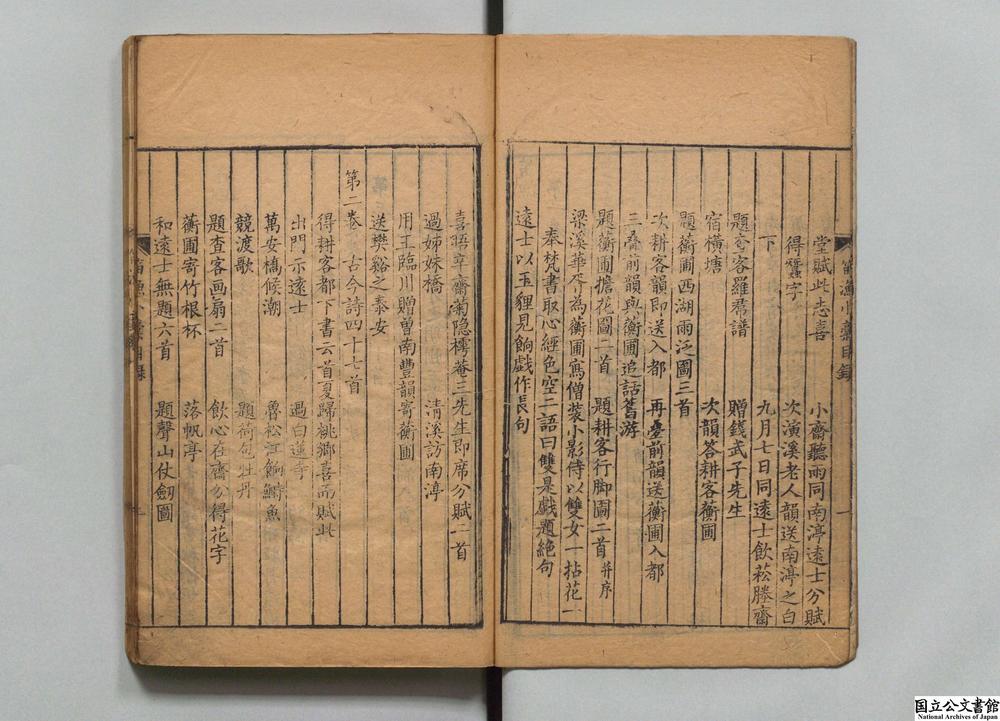 堂賦此志喜　小齋聽雨同南渟遠士分賦
得蠶字　次演溪老人韻送南渟之白
下　九月七日同遠士飲菘塍齋
題查客羅君譜　贈錢武子先生
宿橫塘　次韻答耕客蘅圃
題蘅圃西湖雨泛圖三首
次耕客韻即送入都　再疊前韻送蘅圃入都
三疊前韻與蘅圃追話舊游
題蘅圃擔花圖二首　題耕客行脚圖二首并序
梁溪華 為蘅圃寫僧裝小影侍以雙女一拈花一
奉梵書取心經色空二語曰雙是戲題絕句
遠士以玉貍見餉戲作長句
喜晤辛齋蘜隐樗菴三先生即席分賦二首
過姊妹橋　清溪訪南渟
用王臨川贈曾南豐韻寄蘅圃
送樊谿之泰安
第二卷　古今詩四十七首
得耕客都下書云首夏歸桃鄉喜而賦此
出門示遠士　過白蓮寺
萬安橋候潮　魯松江餉鱘魚
競渡歌　題荷包牡丹
題查客画扇二首　飲心在齋分得花字
蘅圃寄竹根杯　落帆亭
和遠士無題六首　題聲山仗劒圖
小 目錄
国立公文書館
National Archives of Japan